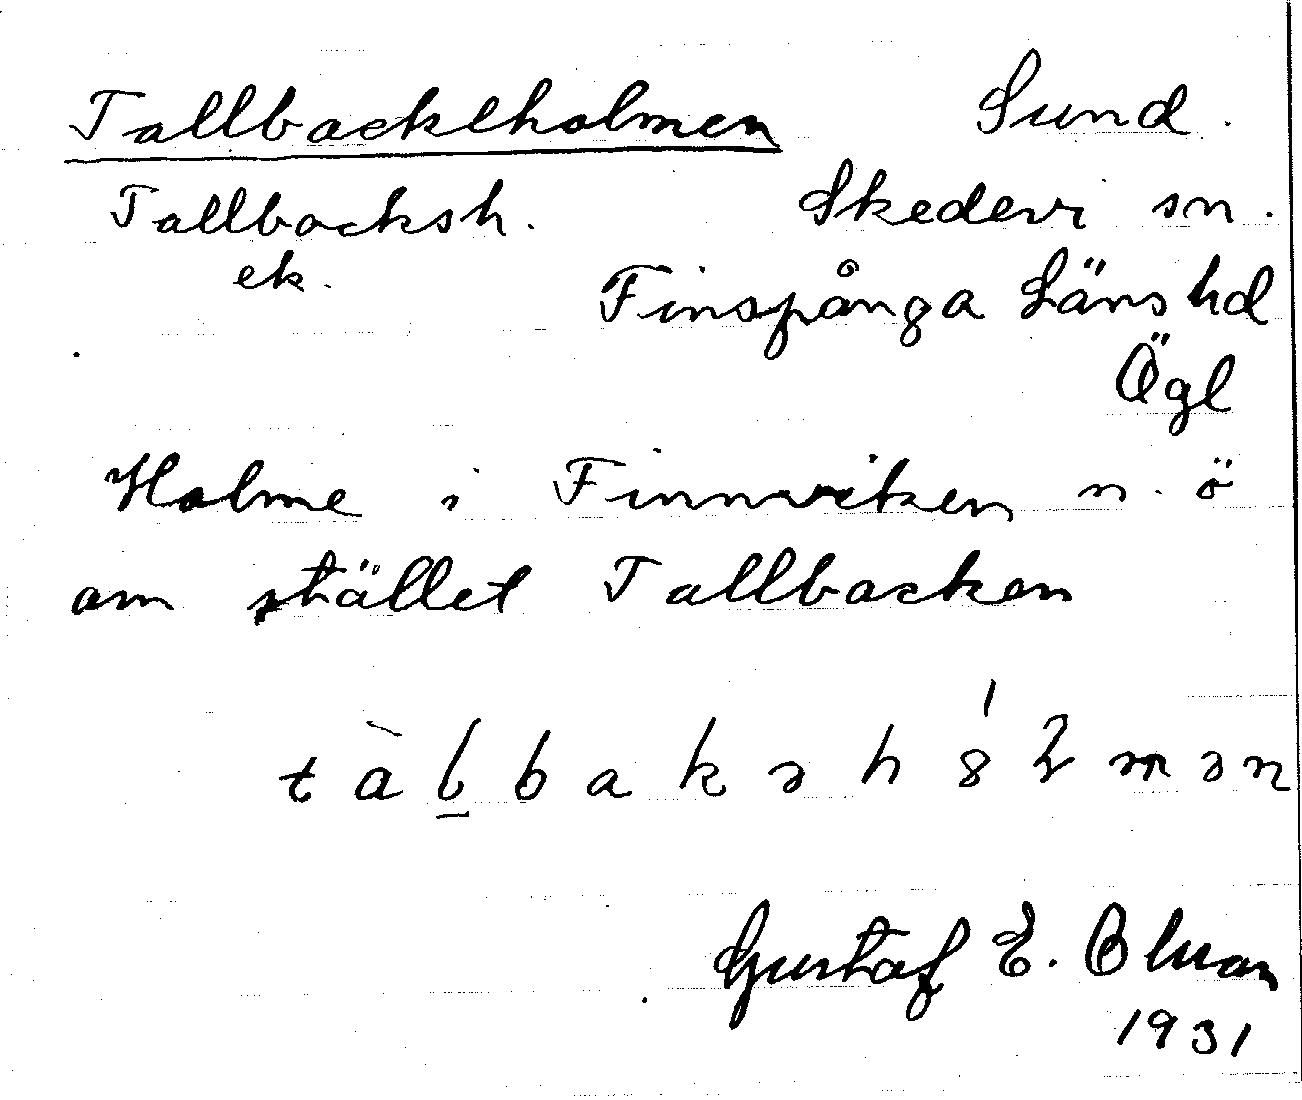 Tallbackeholmen Sund.
Tallbacksh. Skedevi sn.
ek. Finspånga Läns hd
Ögl
Holme i Finnviken n. ö
om stället Tallbacken
Gustaf E. Olsson
1931